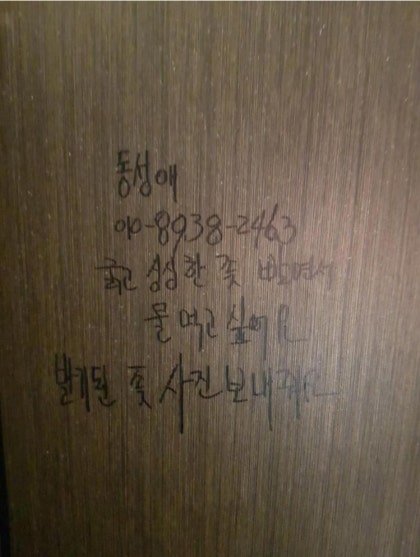 동성애
010-8938-2463
굵고 싱싱한 좆 빨면서
물 먹고 싶어요
발기된 좆 사진 보내줘요